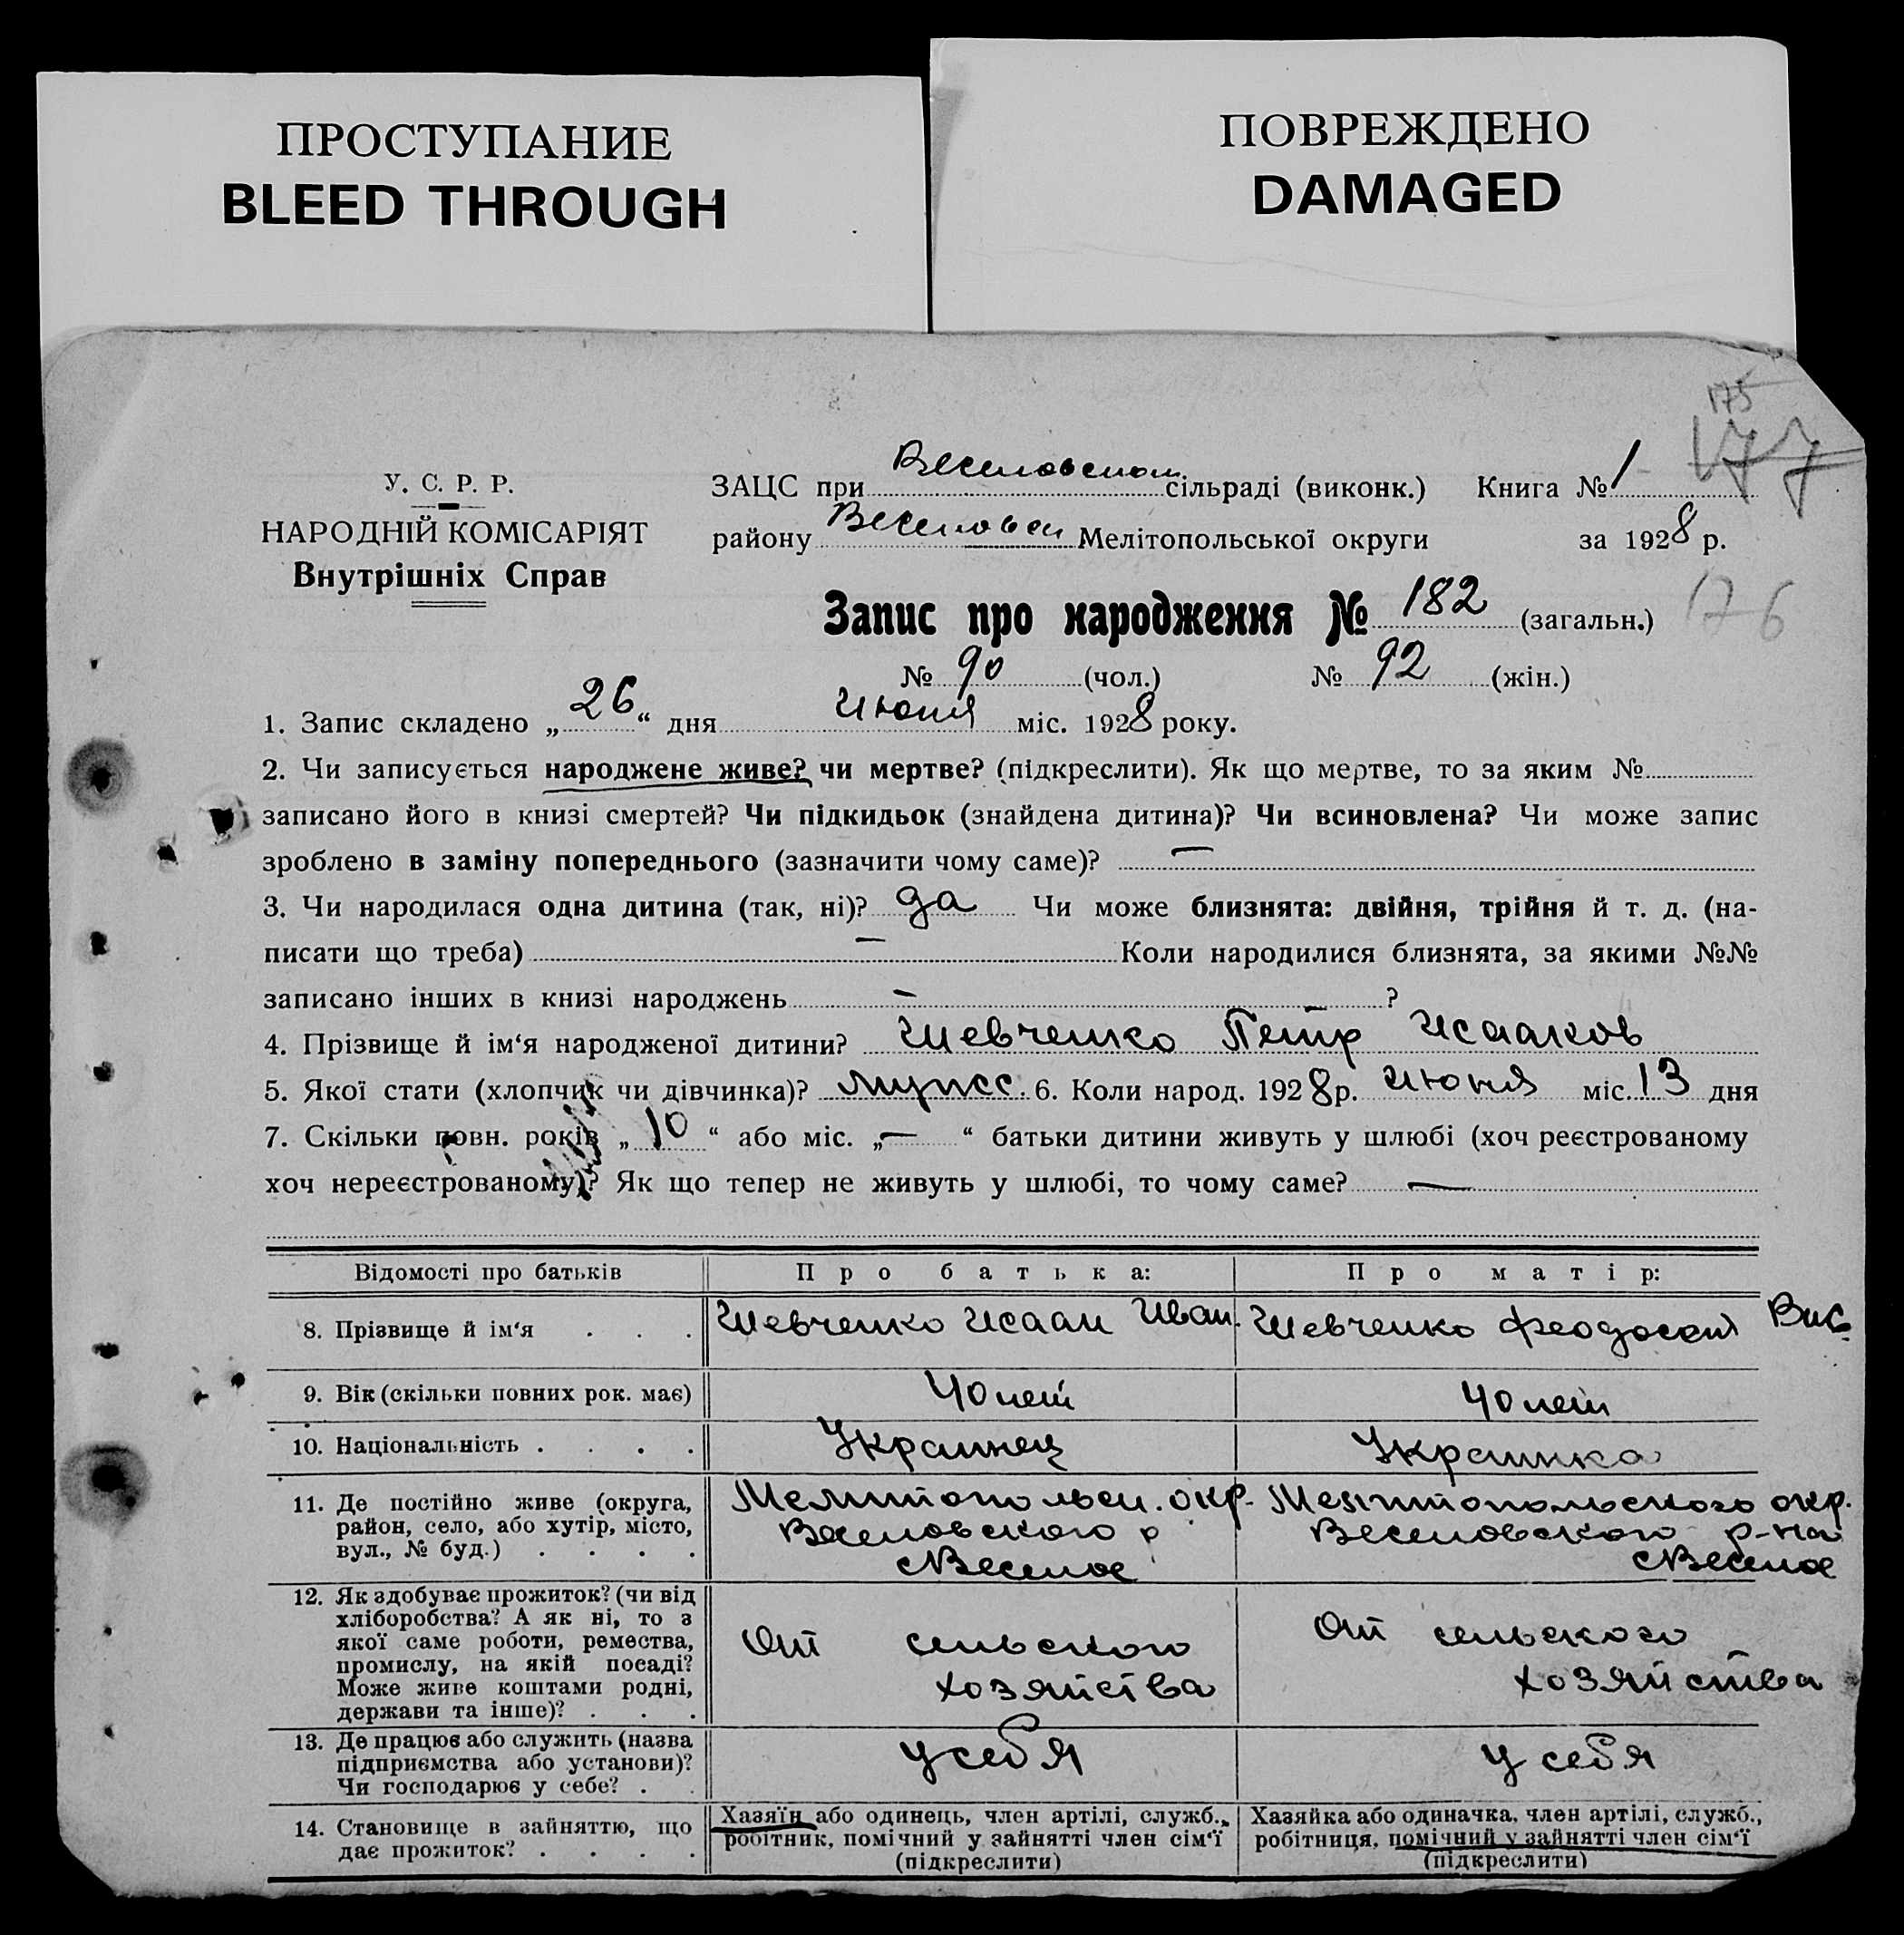 ПРОСТУПАНИЕ
BLEED THROUGH
ПОВРЕЖДЕНО
DAMAGED
175
177
У. С. Р. Р.
НАРОДНІЙ КОМІСАРІЯТ
Внутрішніх Справ
ЗАЦС при Веселовском сільраді (виконк.) Книга № 1
району Веселовск Мелітопольської округи за 1928 р.
Запис про народження № 182 (загальн.) 176
№ 90 (чол.) № 92 (жін.)
1. Запис складено „26“ дня Июня міс. 1928 року.
2. Чи записується народжене живе? чи мертве? (підкреслити). Як що мертве, то за яким №
записано його в книзі смертей? Чи підкидьок (знайдена дитина)? Чи всиновлена? Чи може запис
зроблено в заміну попереднього (зазначити чому саме)? —
3. Чи народилася одна дитина (так, ні)? да Чи може близнята: двійня, трійня й т. д. (на-
писати що треба) — Коли народилися близнята, за якими №№
записано інших в книзі народжень — ?
4. Прізвище й ім‘я народженої дитини? Шевченко Петр Исааков
5. Якої стати (хлопчик чи дівчинка)? мужск. 6. Коли народ. 1928 р. Июня міс. 13 дня
7. Скільки повн. років „10“ або міс. „—“ батьки дитини живуть у шлюбі (хоч реєстрованому
хоч нереєстрованому)? Як що тепер не живуть у шлюбі, то чому саме? —
Відомості про батьків Про батька: Про матір:
8. Прізвище й ім‘я . . . Шевченко Исаак Иван. Шевченко Феодосия Вас.
9. Вік (скільки повних рок. має) 40 лет 40 лет
10. Національність . . . . Украинец Украинка
11. Де постійно живе (округа, район, село, або хутір, місто, вул., № буд.) . . . .
Мелитопольск. окр.
Веселовского р
с Веселое
Мелитопольского окр.
Веселовского р-на
с Веселое
12. Як здобуває прожиток? (чи від
хліборобства? А як ні, то з
якої саме роботи, ремества,
промислу, на якій посаді?
Може живе коштами родні,
держави та інше)? . . .
От сельского
хозяйства
От сельского
хозяйства
13. Де працює або служить (назва
підприємства або установи)?
Чи господарює у себе? . .
у себя
у себя
14. Становище в зайняттю, що
дає прожиток? . . . .
Хазяїн або одинець, член артілі, служб.,
робітник, помічний у зайнятті член сім‘ї
(підкреслити)
Хазяйка або одиначка, член артілі, служб.,
робітниця, помічний у зайнятті член сім‘ї
(підкреслити)